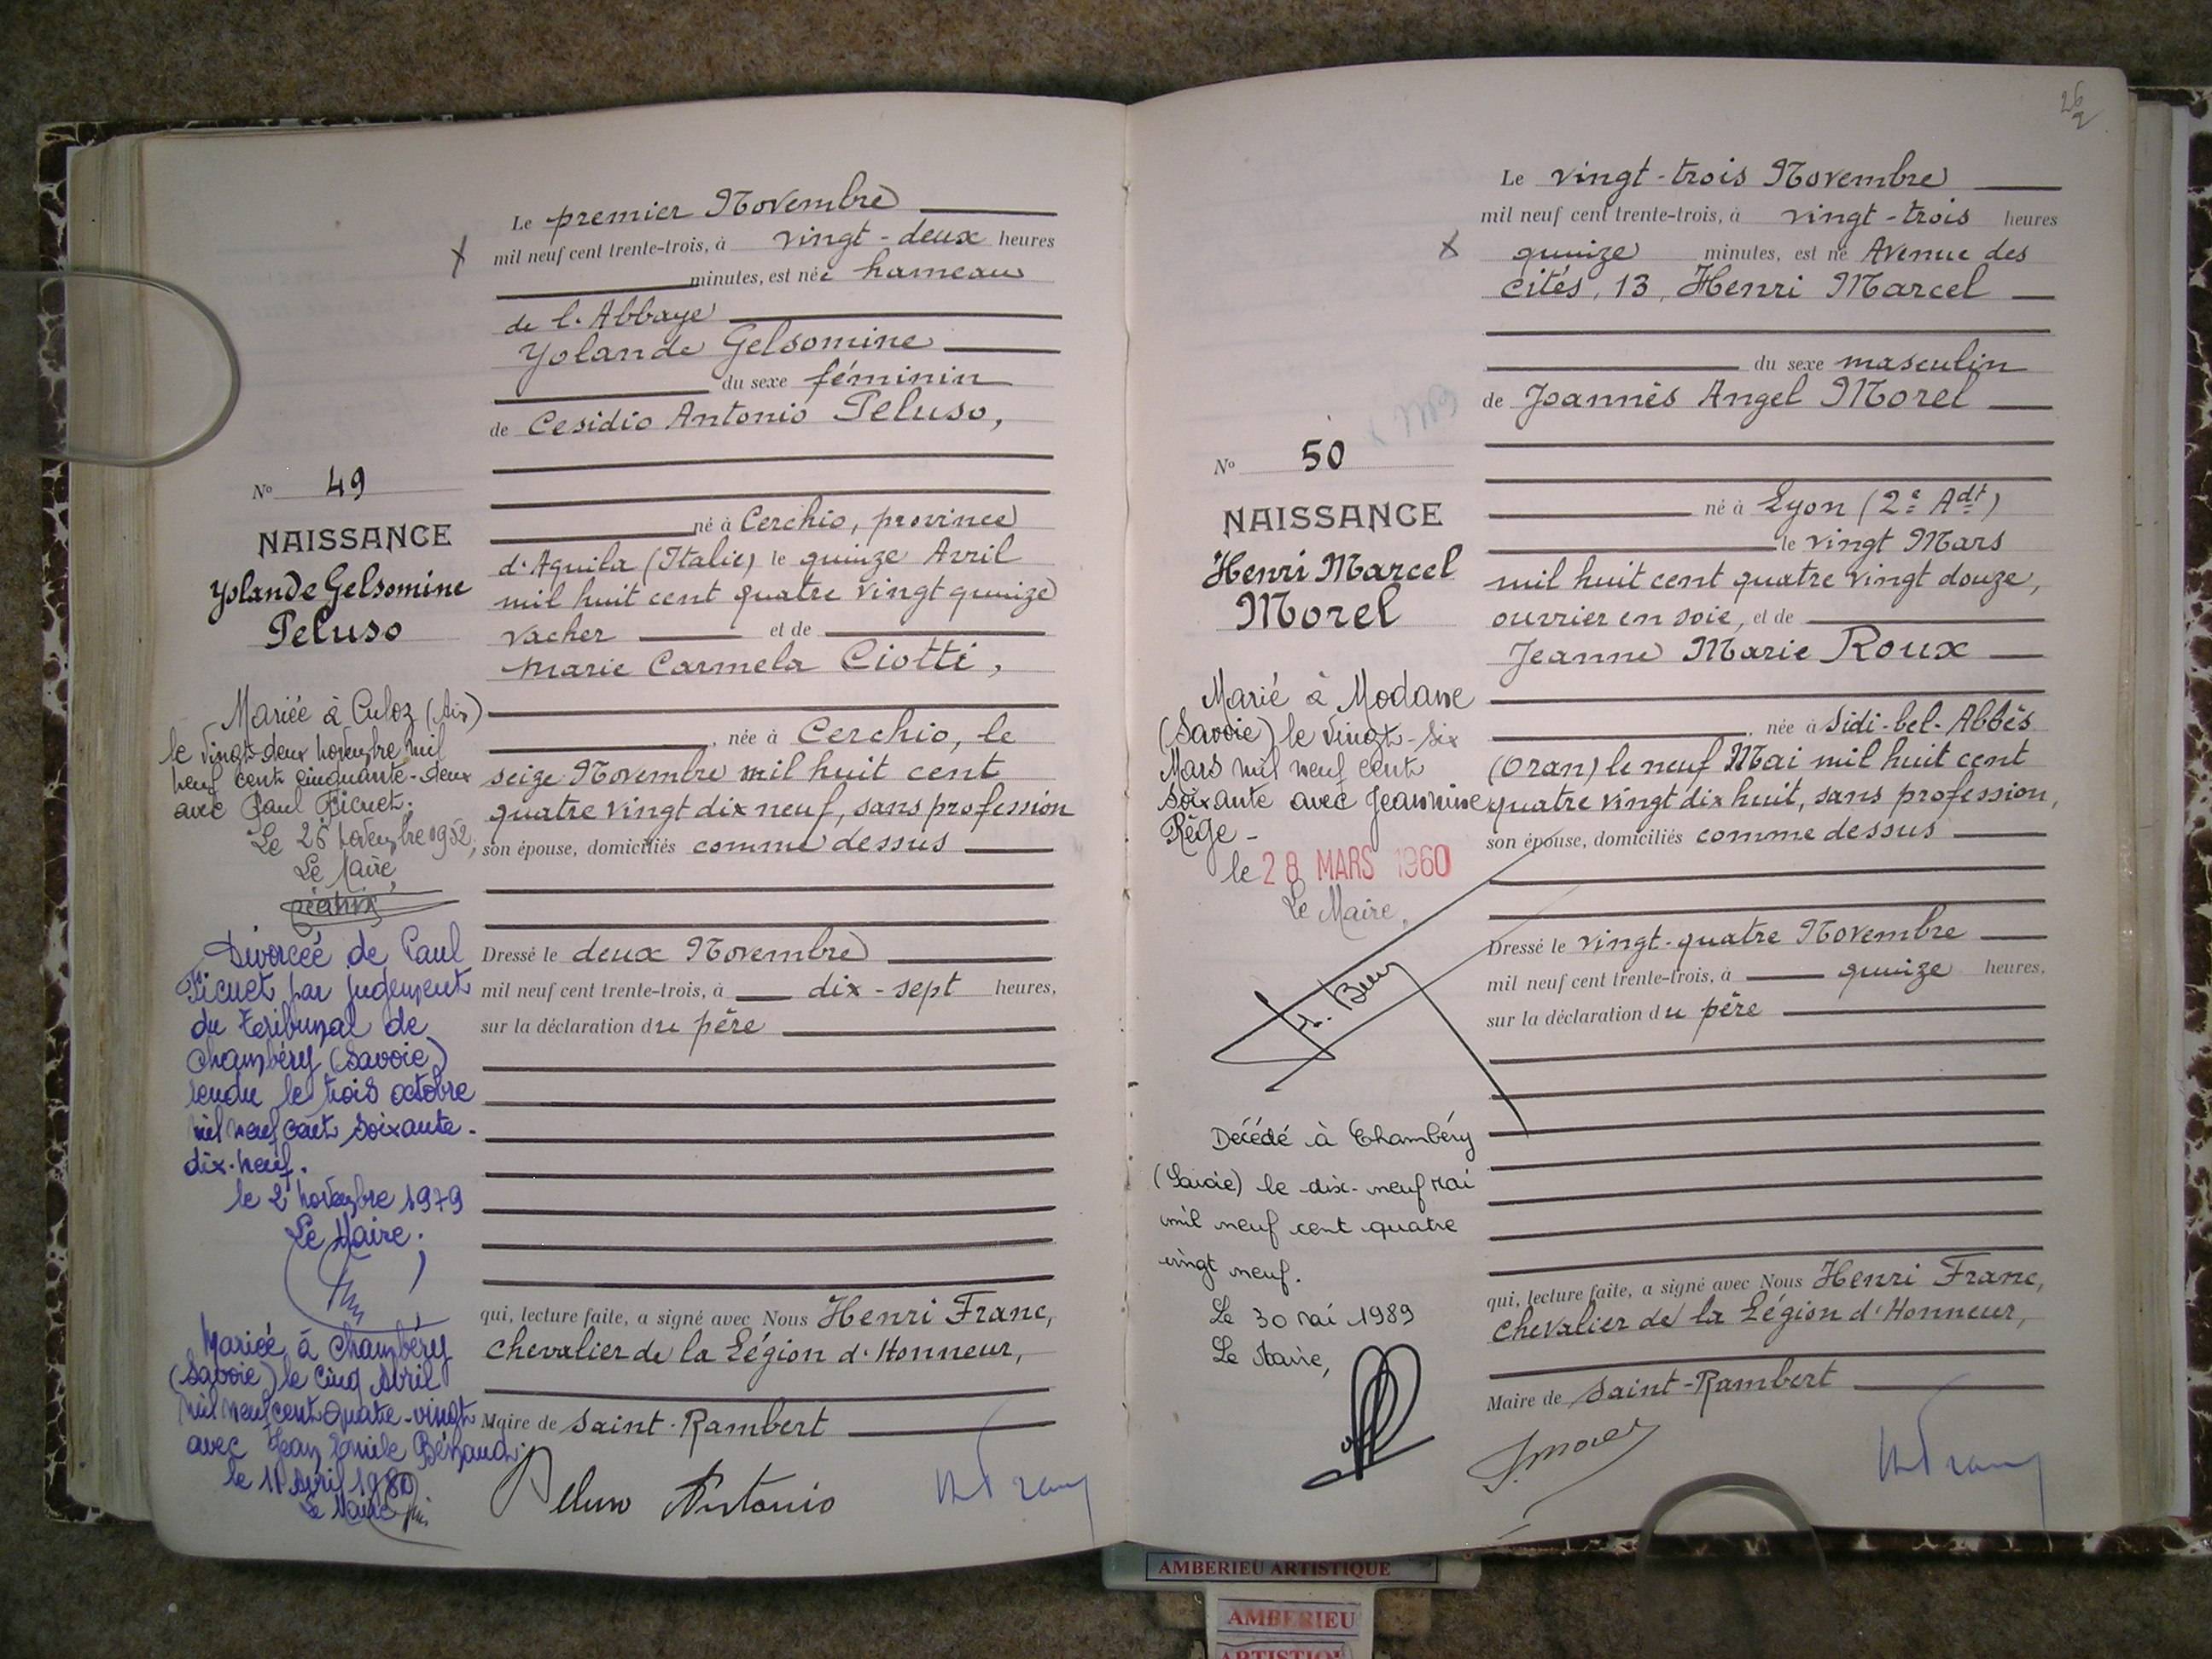 Le premier Novembre
mil neuf cent trente-trois, à vingt-deux heures
minutes, est née hameau
de l'Abbaye
Yolande Gelsomine
du sexe féminin
de Cesidio Antonio Peluso,
né à Cerchio, province
d'Aquila (Italie) le quinze Avril
mil huit cent quatre vingt quinze
vacher et de
Marie Carmela Ciotti,
, née à Cerchio, le
seize Novembre mil huit cent
quatre vingt dix neuf, sans profession
son épouse, domiciliés comme dessus
Dressé le deux Novembre
mil neuf cent trente-trois, à dix-sept heures,
sur la déclaration du père
qui, lecture faite, a signé avec Nous Henri Franc,
Chevalier de la Légion d'Honneur,
Maire de Saint-Rambert
Peluso Antonio
No 49
NAISSANCE
Yolande Gelsomine
Peluso
Mariée à Culoz (Ain)
le vingt-deux novembre mil
neuf cent cinquante-deux
avec Paul Picuet.
Le 26 novembre 1952,
Le Maire,
Divorcée de Paul
Picuet par jugement
du Tribunal de
Chambéry (Savoie)
rendu le trois octobre
mil neuf cent soixante-
dix-neuf.
le 2 novembre 1979
Le Maire.
Mariée à Chambéry
(Savoie) le cinq Avril
mil neuf cent quatre-vingt
avec Jean Emile
le 11 Avril 1980
Le Maire
26
2
Le vingt-trois Novembre
mil neuf cent trente-trois, à vingt-trois heures
quinze minutes, est né Avenue des
cités, 13, Henri Marcel
du sexe masculin
de Joannès Angel Morel
né à Lyon (2e Adt)
le vingt Mars
mil huit cent quatre vingt douze,
ouvrier en soie, et de
Jeanne Marie Roux
, née à Sidi-bel-Abbès
(Oran) le neuf Mai mil huit cent
quatre vingt dix huit, sans profession,
son épouse, domiciliés comme dessus
Dressé le vingt-quatre Novembre
mil neuf cent trente-trois, à quinze heures,
sur la déclaration du père
qui, lecture faite, a signé avec Nous Henri Franc,
Chevalier de la Légion d'Honneur,
Maire de Saint-Rambert
J. Morel
No 50
NAISSANCE
Henri Marcel
Morel
Marié à Modane
(Savoie) le vingt-six
Mars mil neuf cent
soixante avec Jeannine
Rège -
le 28 MARS 1960
Le Maire,
Décédé à Chambéry
(Savoie) le dix-neuf mai
mil neuf cent quatre
vingt neuf.
Le 30 mai 1989
Le Maire,
AMBERIEU ARTISTIQUE
AMBERIEU
ARTISTIQUE